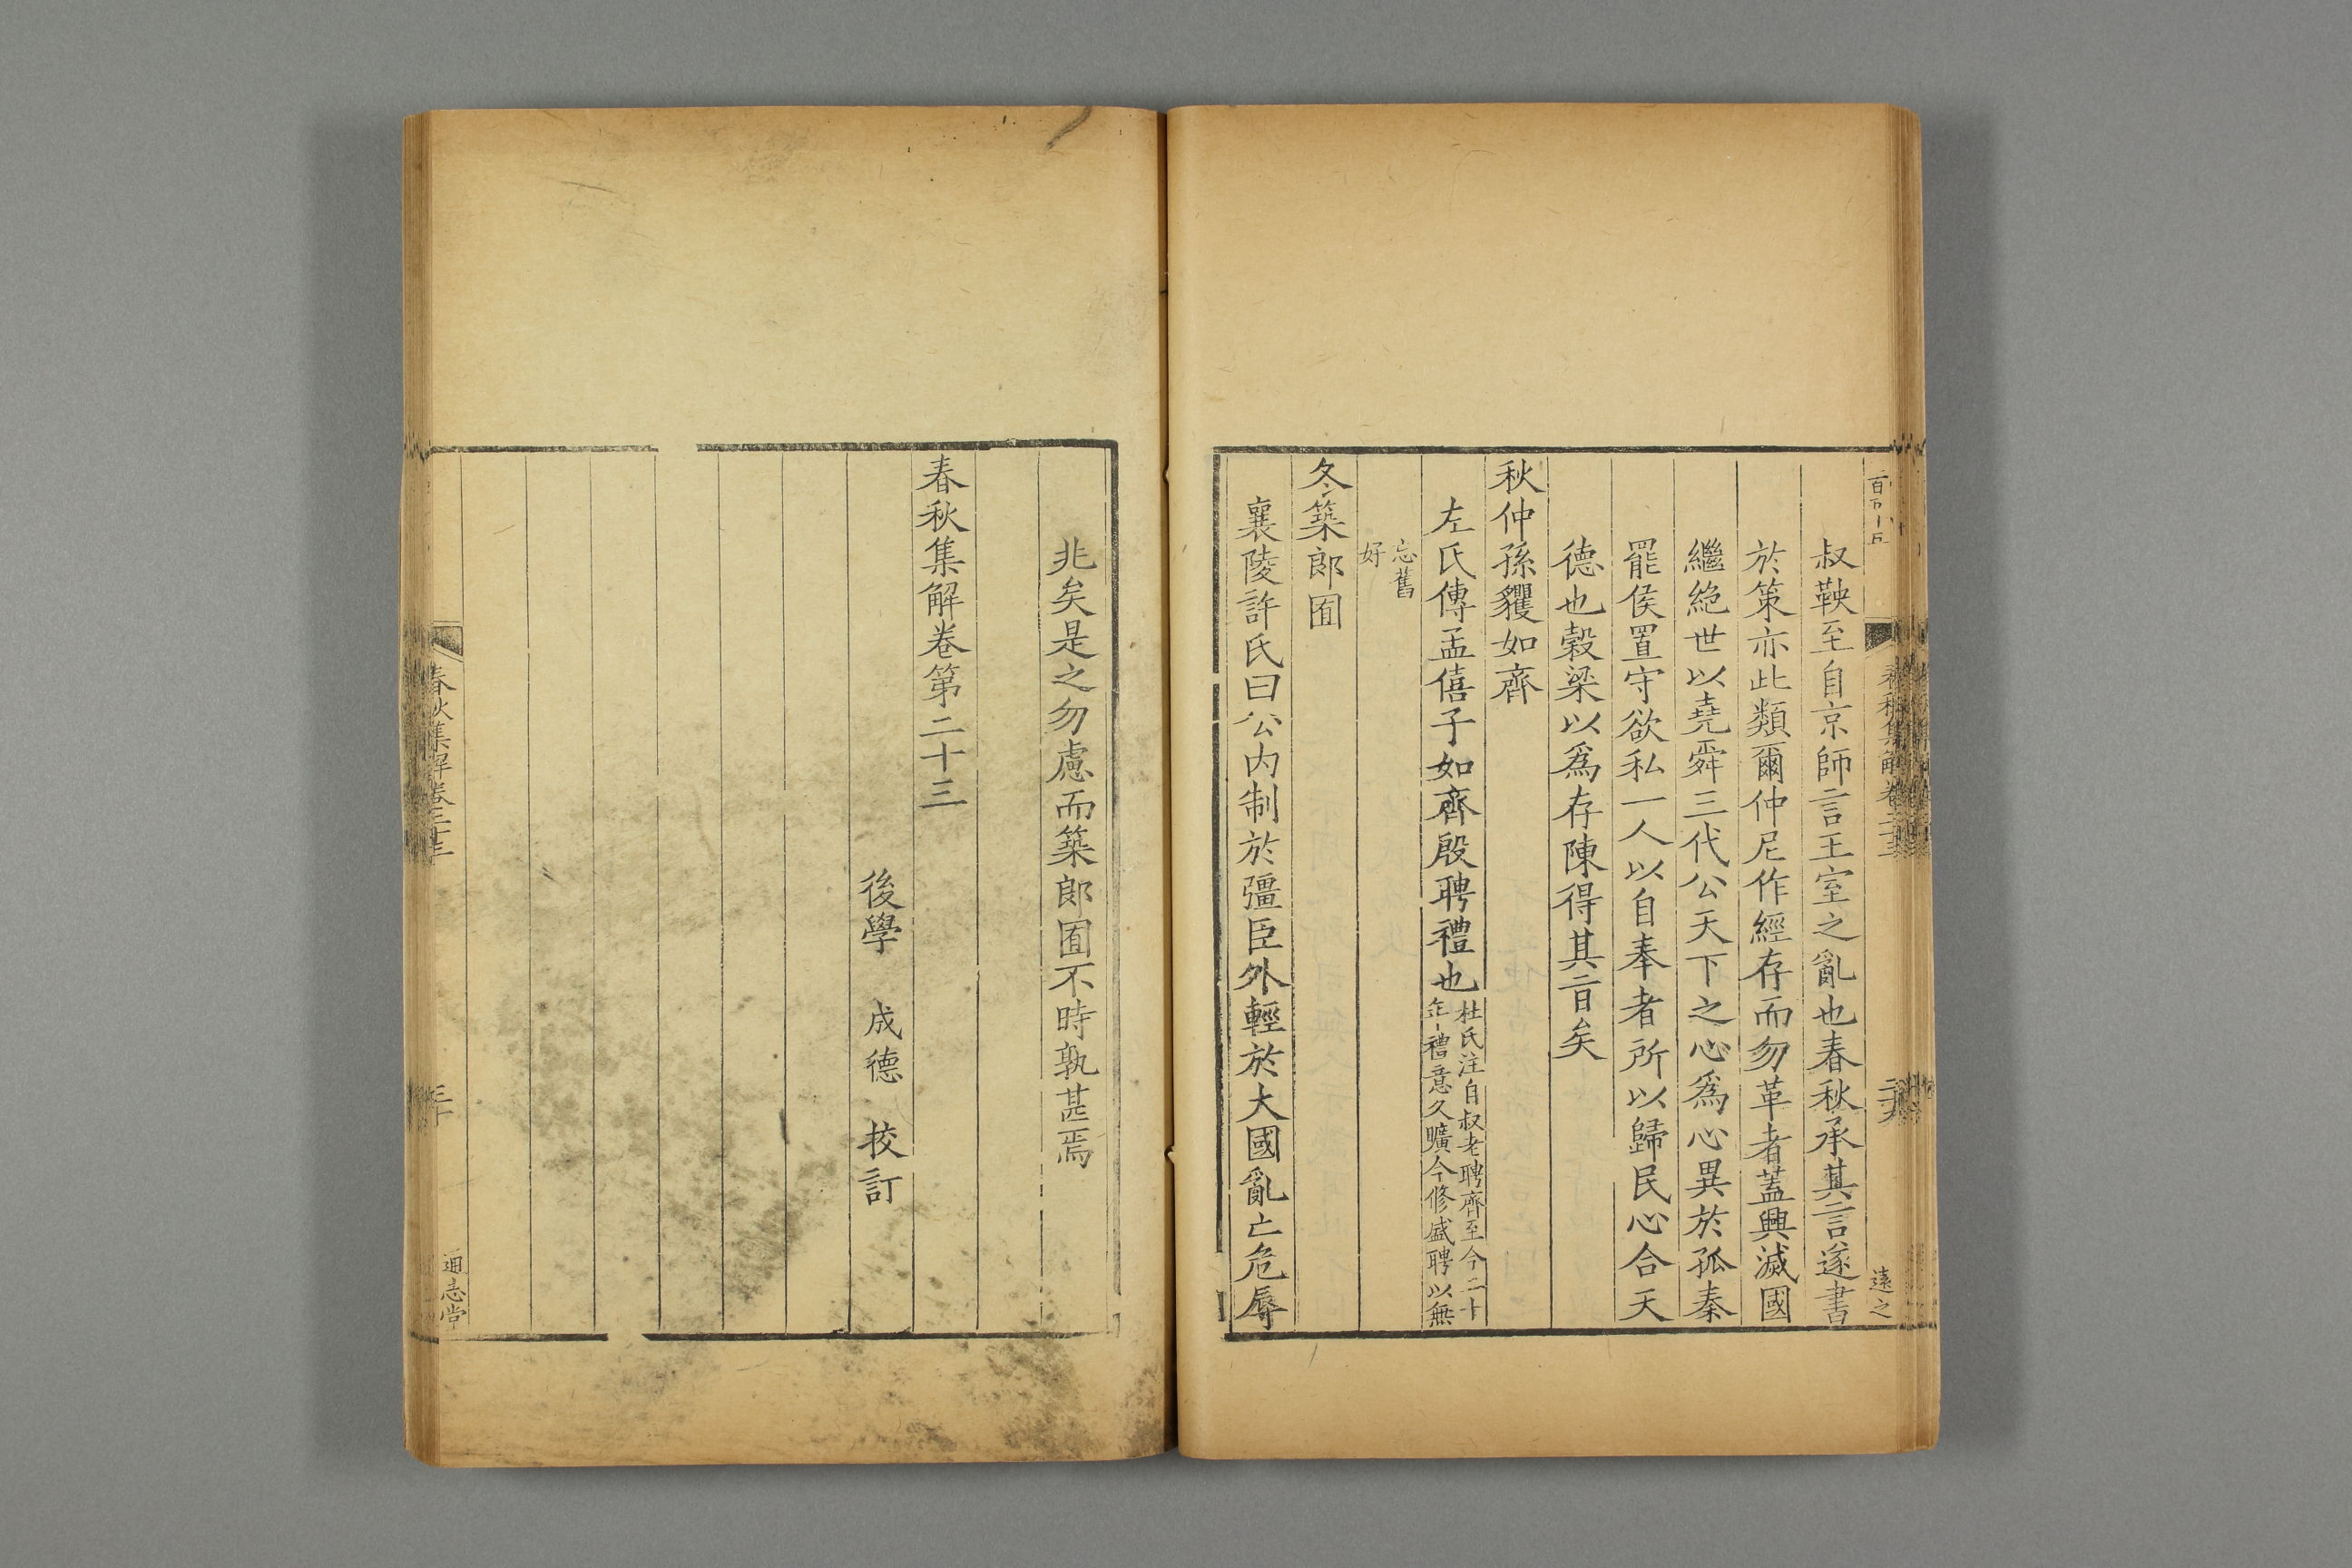 叔鞅至自京師言王室之亂也春秋承其言遂書
於策亦此類爾仲尼作經存而勿革者蓋興滅國
繼絶世以堯舜三代公天下之心爲心異於孤秦
罷侯置守欲私一人以自奉者所以歸民心合天
德也穀梁以爲存陳得其旨矣
秋仲孫貜如齊
左氏傳孟僖子如齊殷聘禮也
杜氏注自叔老聘齊至今二十
年禮意久曠今修盛聘以無
忘舊
好
冬築郎囿
襄陵許氏曰公内制於彊臣外輕於大國亂亡危辱
兆矣是之勿慮而築郎囿不時孰甚焉
春秋集解卷第二十三
後學 成德 挍訂
春秋集解卷二十三
三十
通志堂
春秋集解卷二十三
二十九
遠之